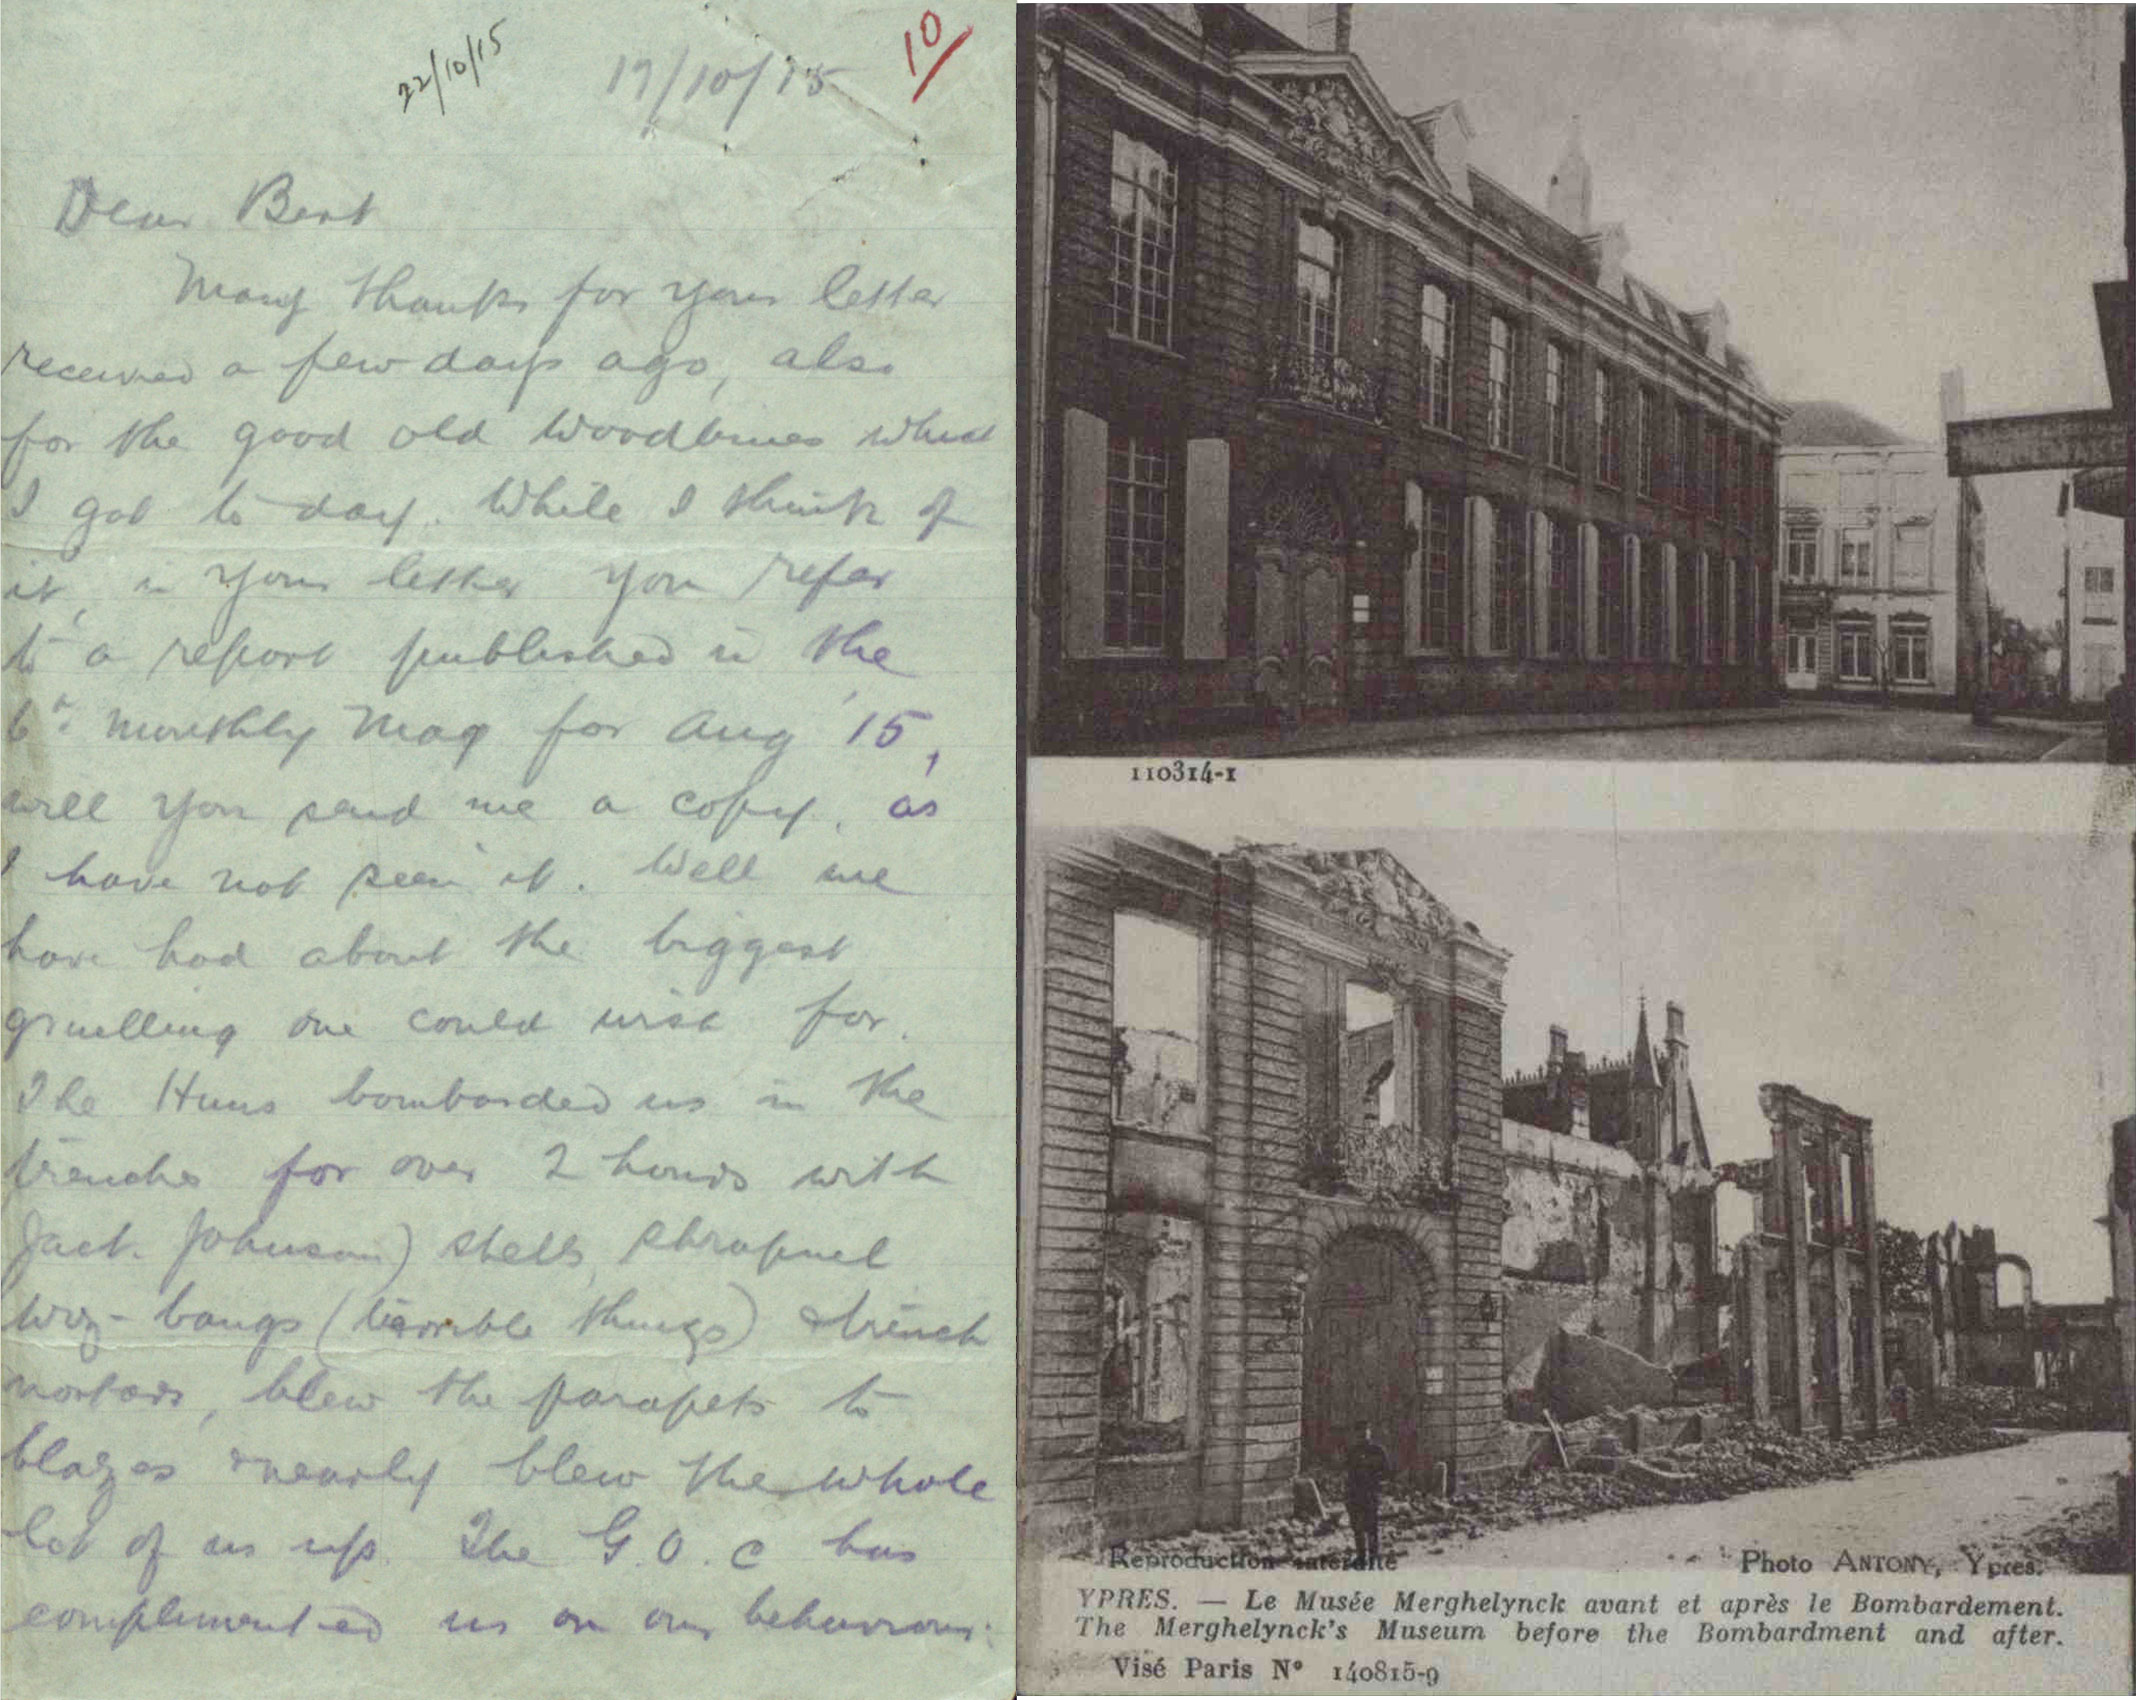 22/10/15
19/10/15
10/
Dear Bert
Many thanks for your letter
received a few days ago, also
for the good old Woodbines which
I got to day. While I think of
it, in your letter you refer
to a report published in the
monthly Mag for Aug '15,
will you send me a copy, as
I have not seen it. Well we
have had about the biggest
gruelling one could wish for.
The Huns bombarded us in the
trenches for over 2 hours with
Jack Johnson) shells, shrapnel
wiz-bangs (terrible things) & trench
mortars, blew the parapets to
blazes & nearly blew the whole
lot of us up. The G.O.C has
complimented us on our behaviour.
110314-1
Reproduction interdite
Photo ANTONY, Ypres.
YPRES. — Le Musée Merghelynck avant et après le Bombardement.
The Merghelynck's Museum before the Bombardment and after.
Visé Paris N° 140815-9